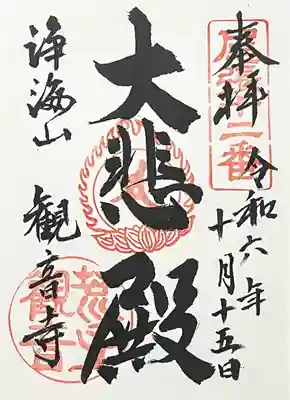 奉拝
令和六年
十月十五日
大悲殿
海山
観音寺